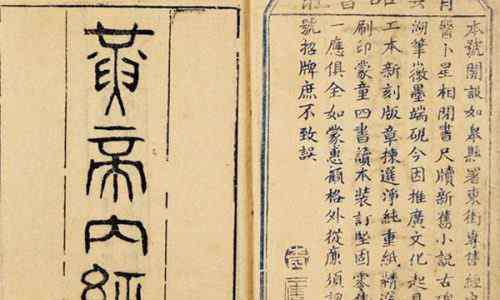 本號開設如皋縣署東街專售經
醫卜星相閒書尺牘新舊小說古碑
湖筆徽墨端硯今因推廣文化起見
工本新刻版章揀選淨純重紙精
刷印蒙童四書讀本裝訂堅固零售
一應俱全如蒙惠顧格外從廉須認
號招牌庶不致誤
黃帝內經